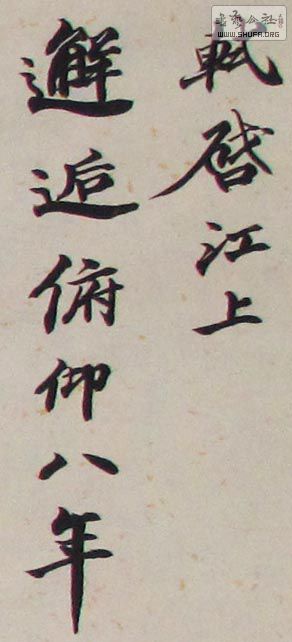 軾啓江上
邂逅俯仰八年
WWW.SHUFA.ORG